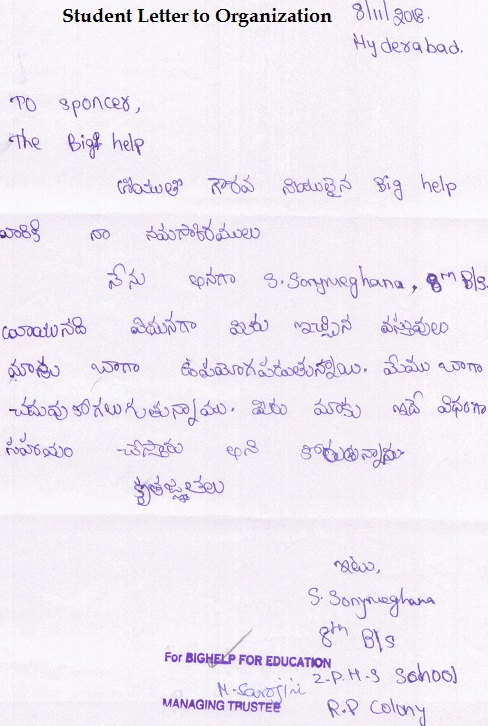 Student Letter to Organization
8/11/2018.
Hyderabad.
TO sponcer,
The Big help
దయతో గౌరవ నీయులైన Big help
వారికి నా నమస్కారములు
నేను అనగా S. Sonymeghana, 8th B/s.
వ్రాయునది ఏమనగా మీరు ఇచ్చిన వస్తువులు
మాకు బాగా ఉపయోగపడుతున్నాయి. మేము బాగా
చదువుకోగలుగుతున్నాము. మీరు మాకు ఇదే విధంగా
సహాయం చేస్తారు అని కోరుతున్నాను
కృతజ్ఞతలు
ఇటు,
S. Sonymeghana
8th B/s
Z-P.H-S School
R.P Colony
For BIGHELP FOR EDUCATION
M. Sarojini
MANAGING TRUSTEE